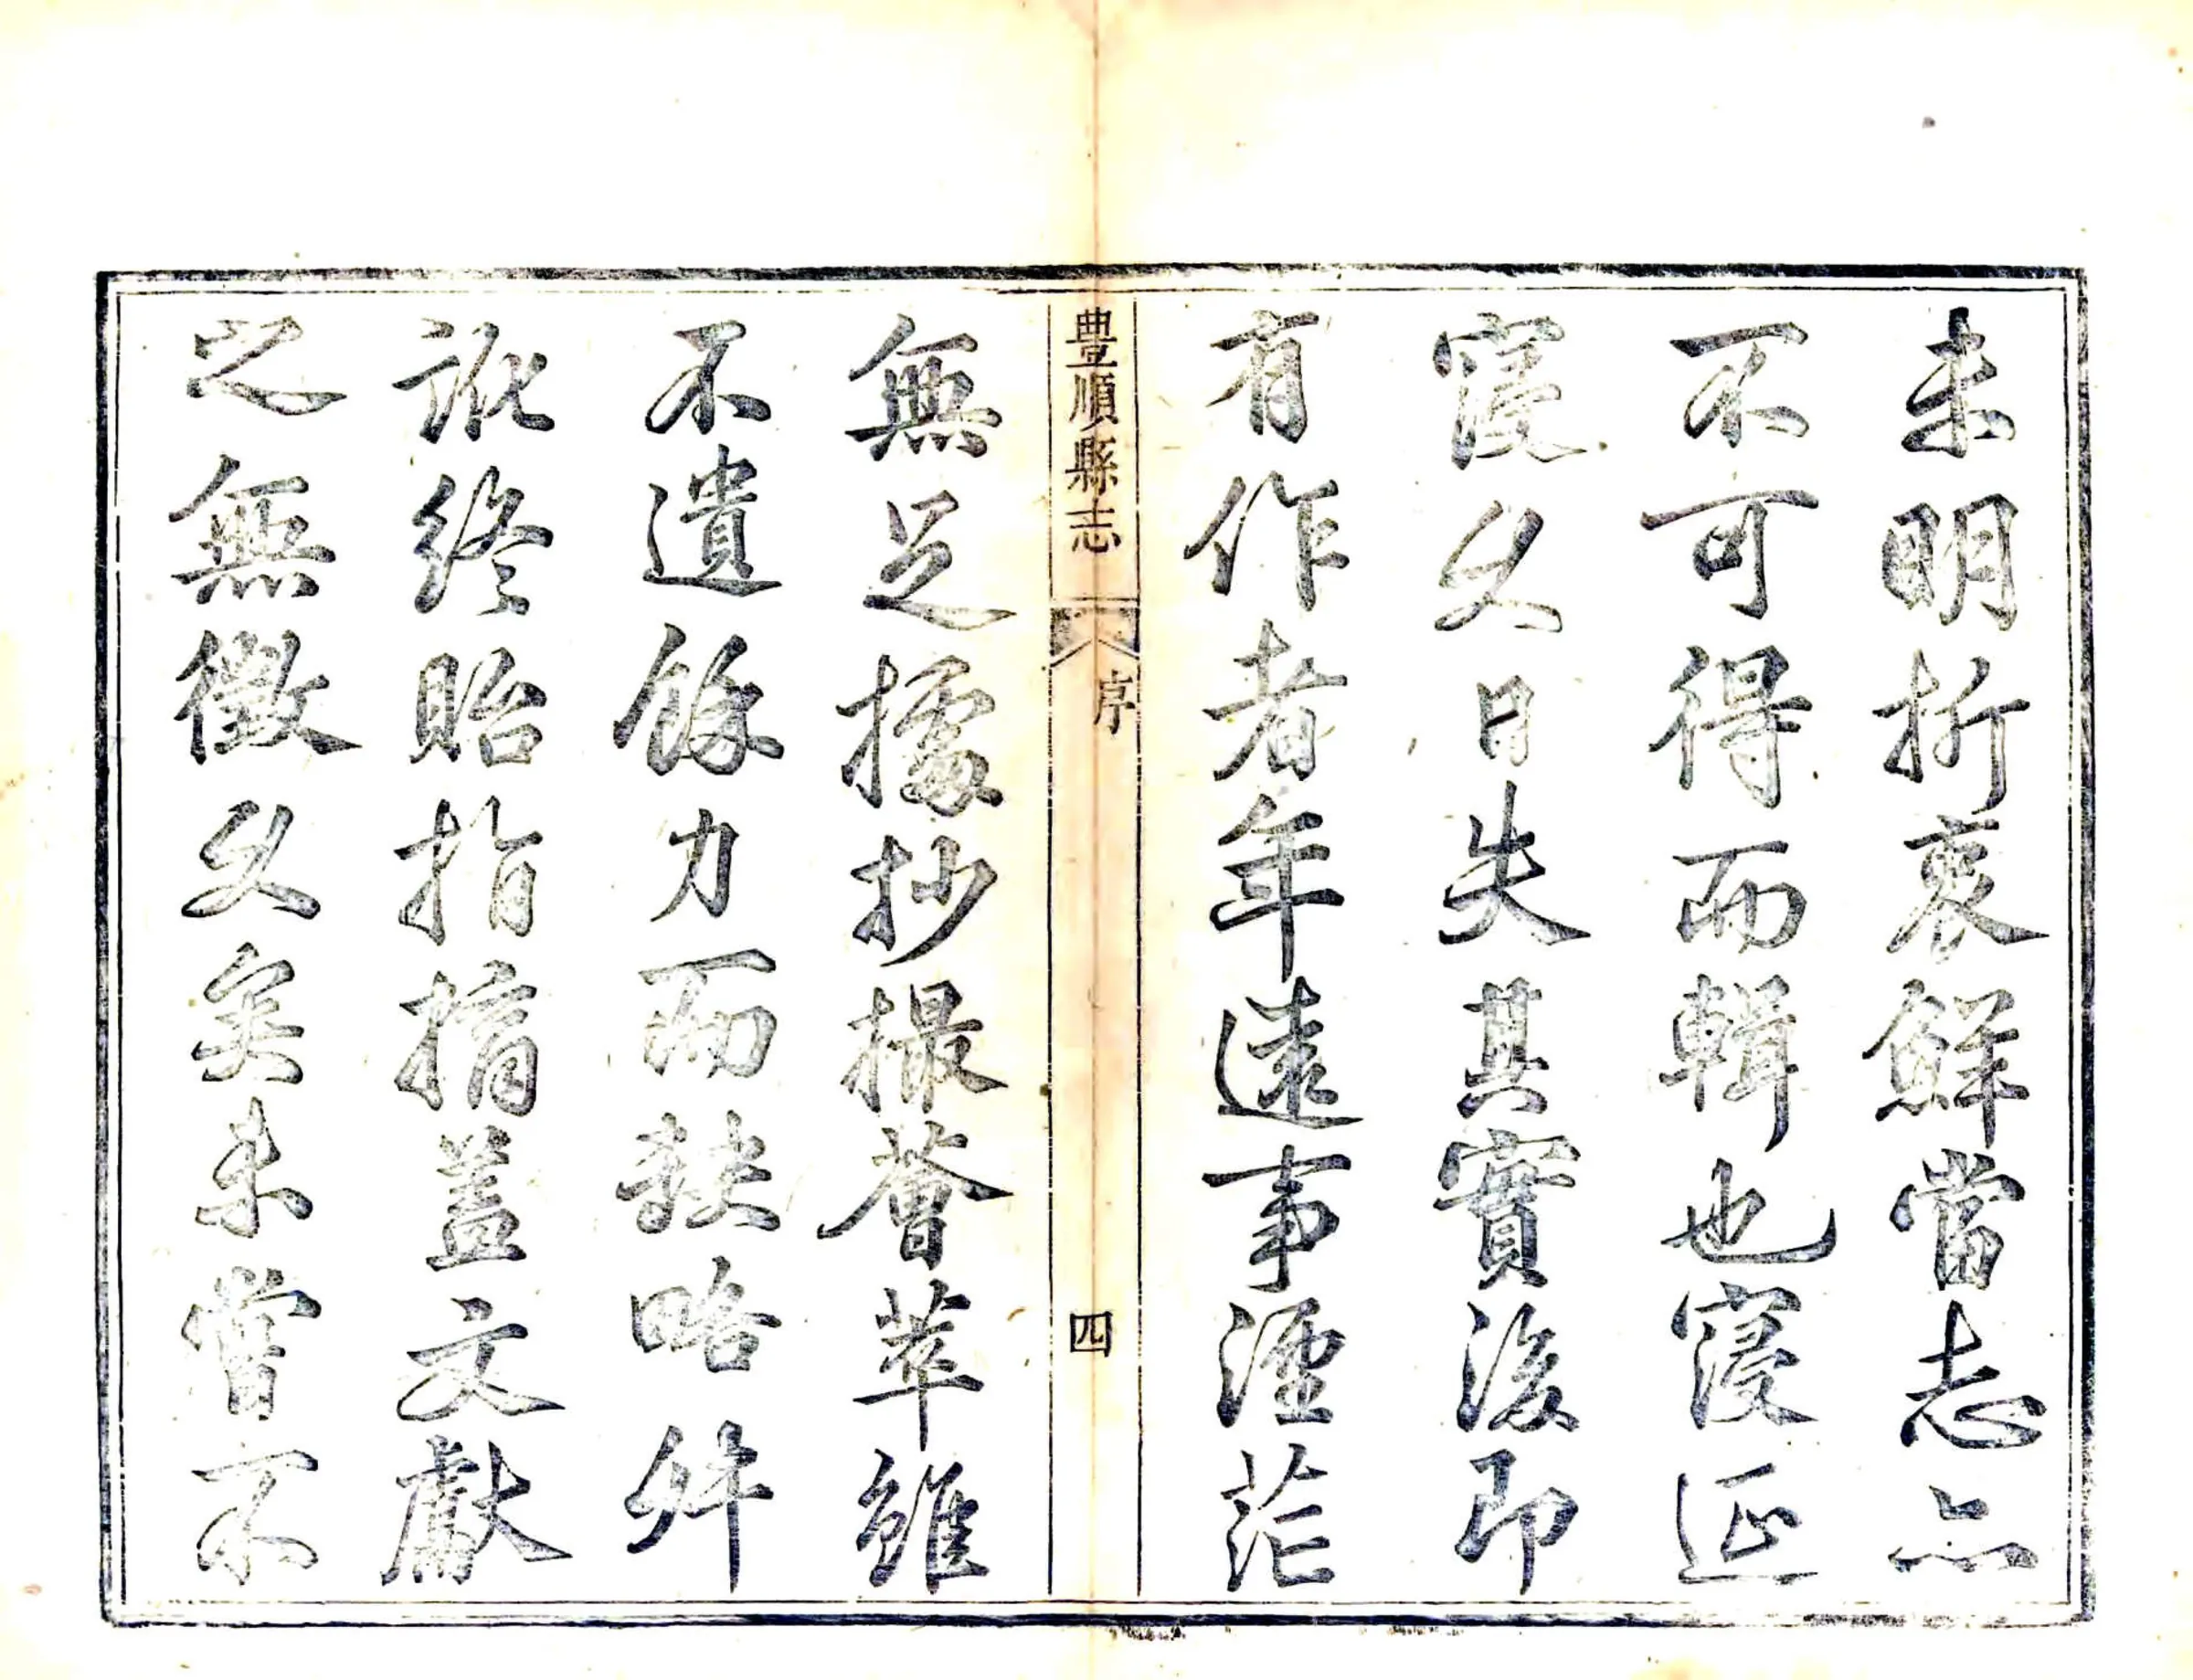 未明折衷鮮當志亦
不可得而輯也寖延
寖久日失其實後即
有作者年遠事湮茫
豐順縣志
序
四
無足據抄撮薈萃雖
不遺餘力而缺略舛
訛終貽指摘蓋文獻
之無徵久矣未嘗不